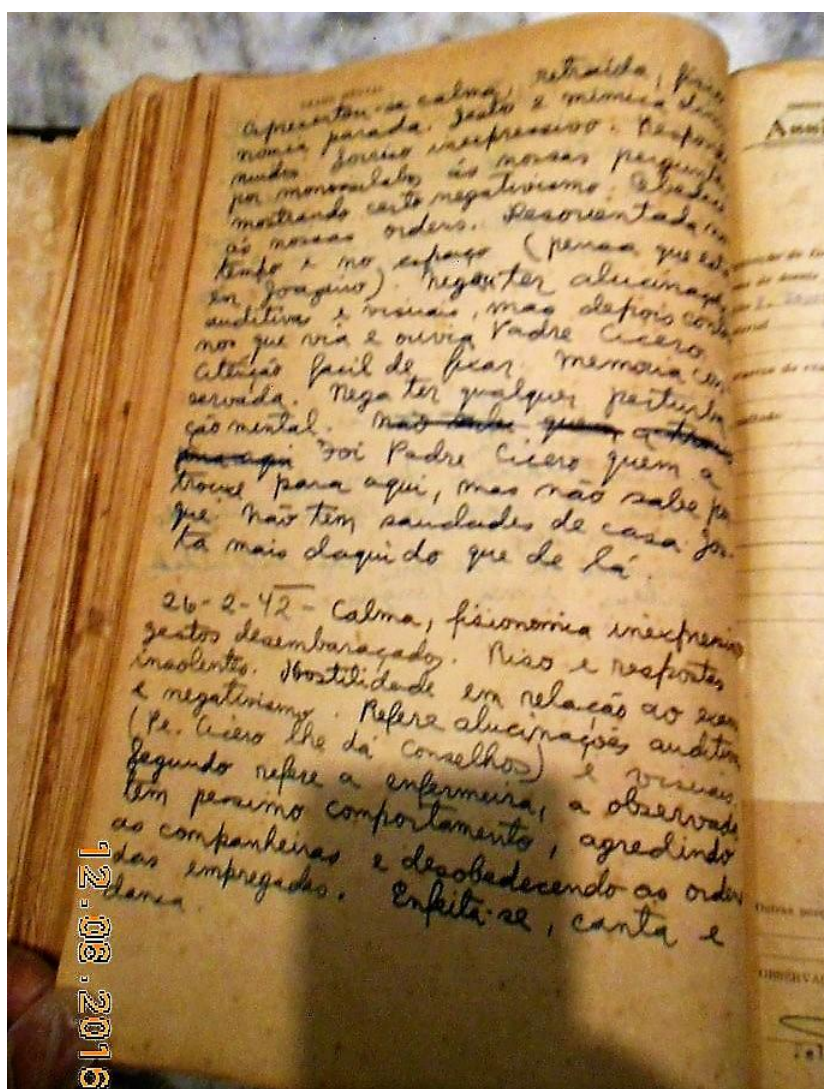 Apresentou-se calma, retraída, fisio
nomia parada. Gesto e mimica dimi
nuidos. Sorriso inexpressivo. Responde
por monosilabos ás nossas pergunta
mostrando certo negativismo. Obedece
ás nossas ordens. Desorientada no
tempo e no espaço (pensa que está
em Joazeiro). Nega ter alucinaçõ
auditivas e visuais, mas depois conta
nos que via e ouvia Padre Cicero.
Atenção facil de ficar. Memoria con
servada. Nega ter qualquer perturba
ção mental. Não sabe quem a trouxe
para aqui Foi Padre Cicero quem a
trouxe para aqui, mas não sabe por
que. Não tem saudades de casa. Gos-
ta mais daqui do que de lá.
26-2-42 - Calma, fisionomia inexpressiv
gestos desembaraçados. Riso e respostas
insolentes. Hostilidade em relação ao exam
e negativismo. Refere alucinações auditiva
(Pe. Cicero lhe dá conselhos) e visuais.
Segundo refere a enfermeira, a observada
tem pessimo comportamento, agredindo
as companheiras e desobedecendo as orden
das empregadas. Enfeita-se, canta e
dansa.
Ann
OBSERVAÇ
12.08.2016